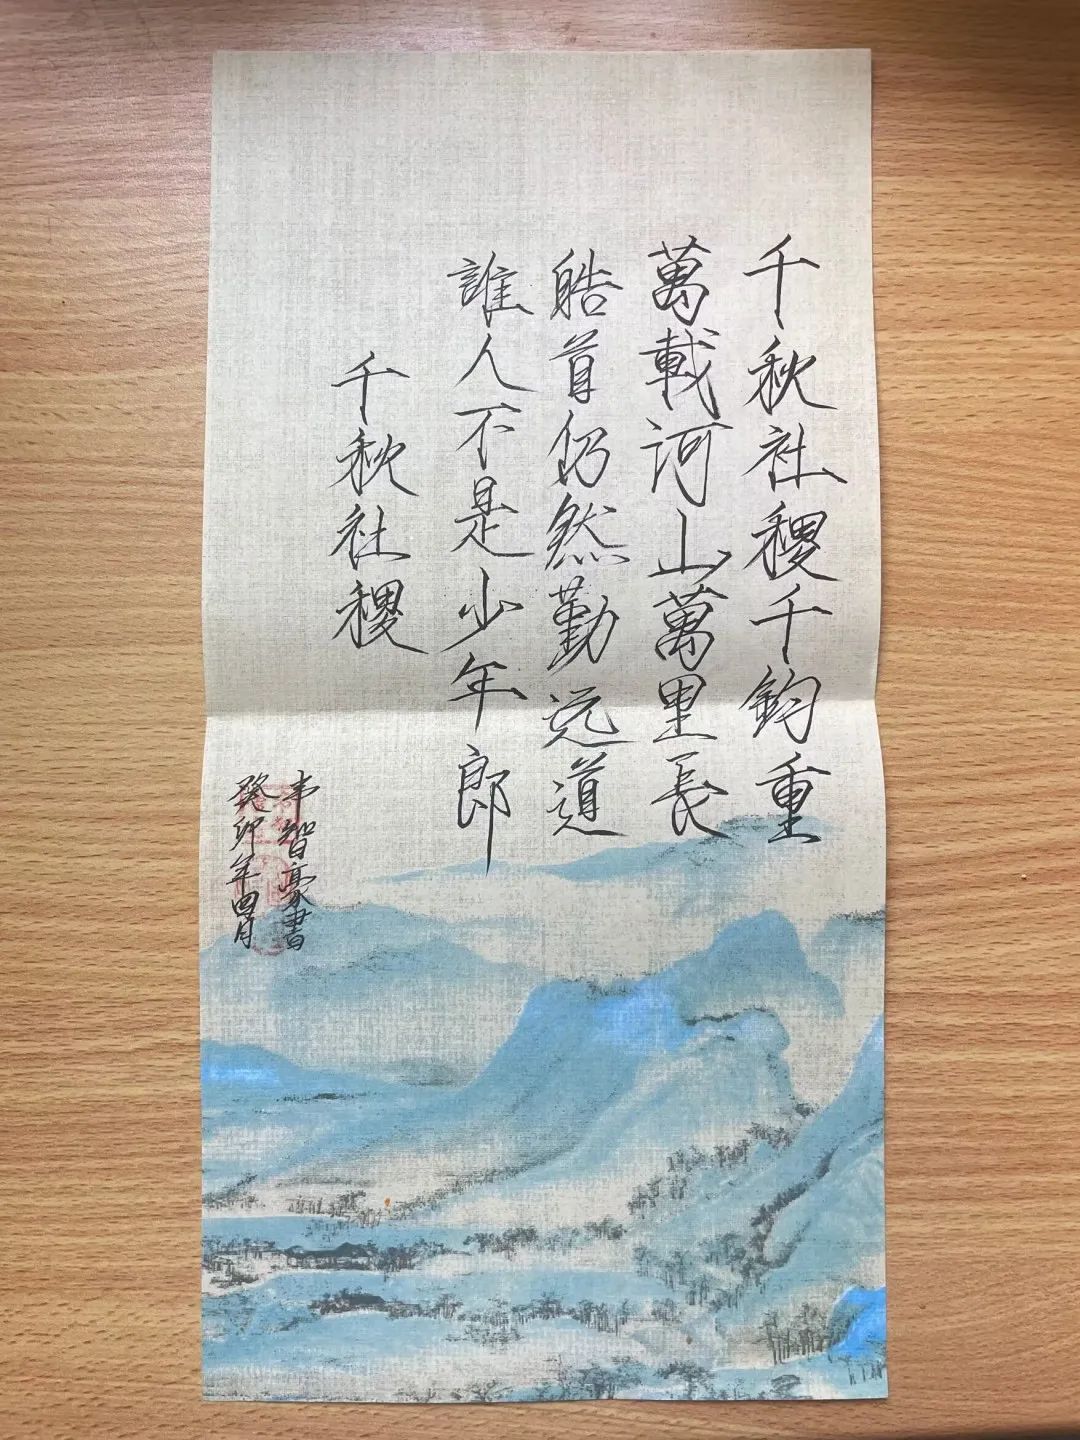 千秋社稷千鈞重
萬載河山萬里長
皓首仍然勤远道
誰人不是少年郎
千秋社稷
韦智豪書
癸卯年四月